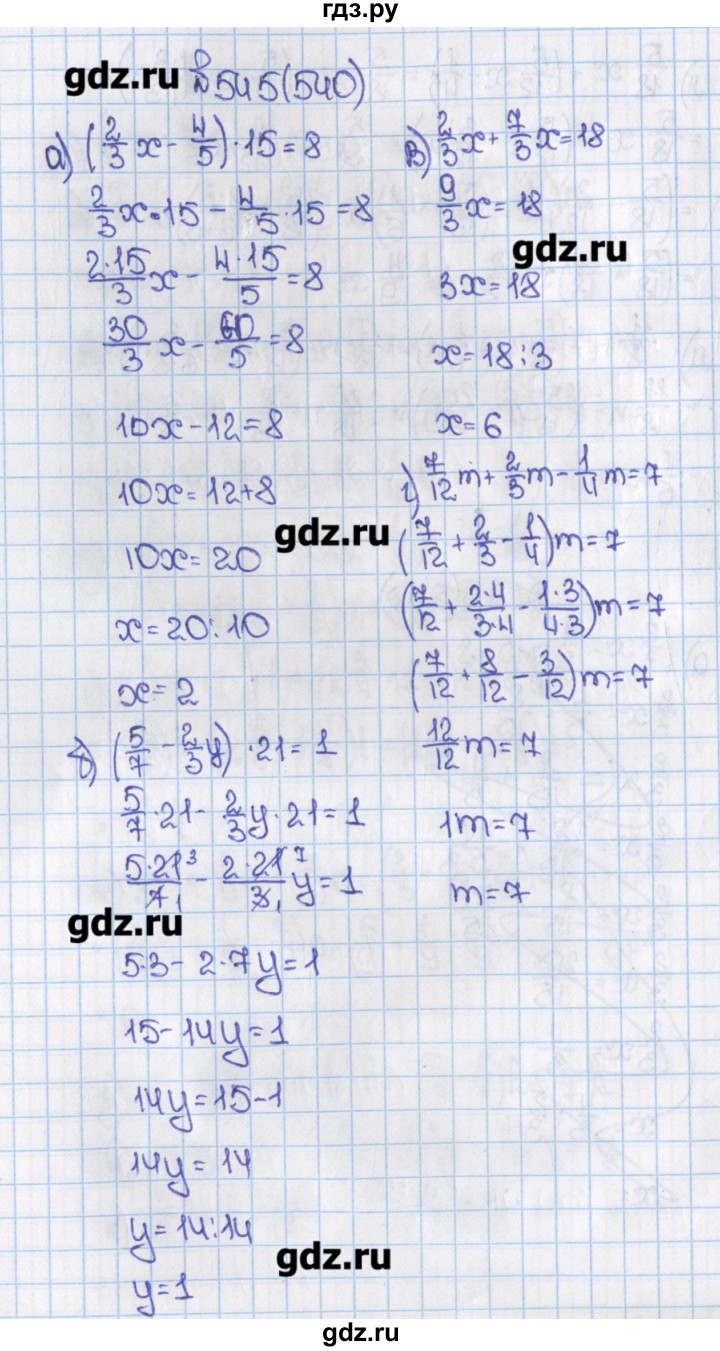 гдз.ру
gdz.ru
№545(540)
а) (2/3 x - 4/5)·15=8
2/3 x·15 - 4/5·15=8
2·15/3 x - 4·15/5 =8
30/3 x - 60/5 =8
10x-12=8
10x=12+8
10x=20
x=20:10
x=2
б) (5/7 - 2/3 y)·21=1
5/7·21- 2/3 y·21=1
5·21³/7₁ - 2·21⁷/3₁ y=1
gdz.ru
5·3-2·7y=1
15-14y=1
14y=15-1
14y=14
y=14:14
y=1
в) 2/3 x+ 7/3 x=18
9/3 x=18
gdz.ru
3x=18
x=18:3
x=6
г) 7/12 m+ 2/3 m- 1/4 m=7
gdz.ru
(7/12 + 2/3 - 1/4)m=7
(7/12 + 2·4/3·4 - 1·3/4·3)m=7
(7/12 + 8/12 - 3/12)m=7
12/12 m=7
1m=7
m=7
gdz.ru
gdz.ru